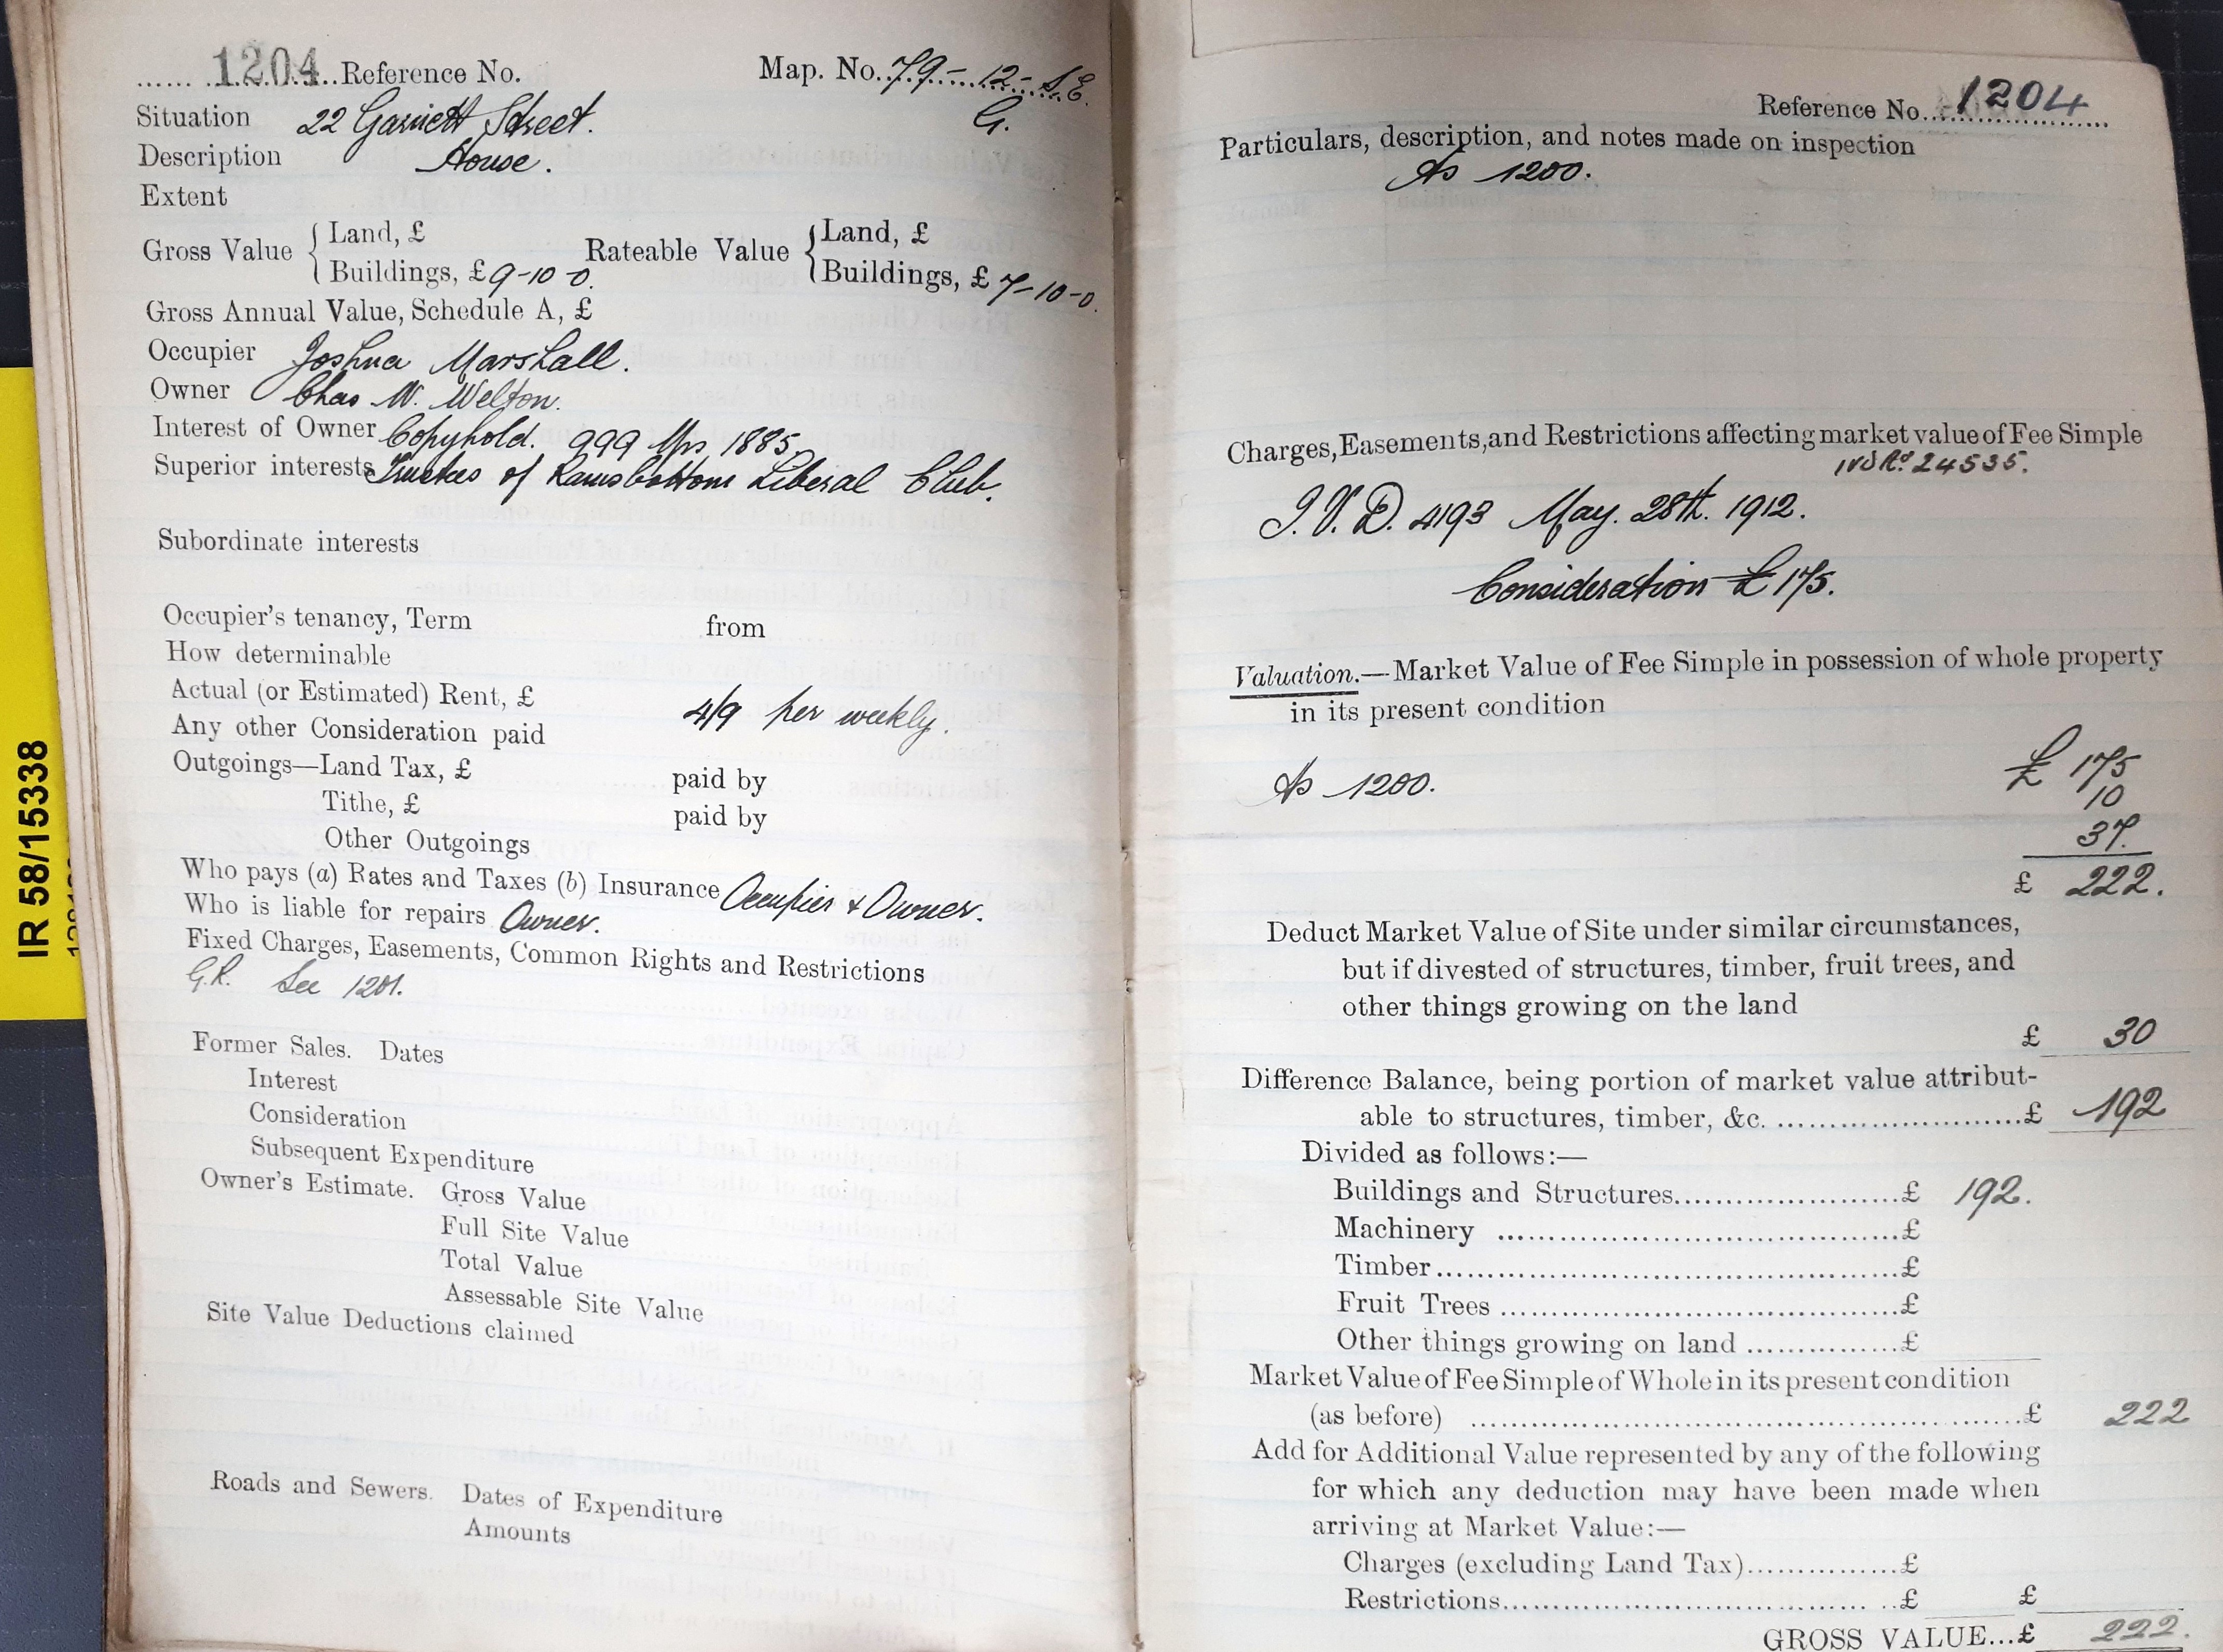 IR 58/15338
1204 Reference No.
Map. No. 79 - 12 - S.E.
G.
Situation 22 Garnett Street.
Description House.
Extent
Gross Value { Land, £
Buildings, £ 9-10-0.
Rateable Value { Land, £
Buildings, £ 7-10-0.
Gross Annual Value, Schedule A, £
Occupier Joshua Marshall.
Owner Chas W. Welton.
Interest of Owner Copyhold. 999 yrs 1885.
Superior interests Trustees of Ramsbottom Liberal Club.
Subordinate interests
Occupier's tenancy, Term from
How determinable
Actual (or Estimated) Rent, £ 4/9 per weekly.
Any other Consideration paid
Outgoings—Land Tax, £ paid by
Tithe, £ paid by
Other Outgoings
Who pays (a) Rates and Taxes (b) Insurance Occupier & Owner.
Who is liable for repairs Owner.
Fixed Charges, Easements, Common Rights and Restrictions
G.R. See 1201.
Former Sales. Dates
Interest
Consideration
Subsequent Expenditure
Owner's Estimate. Gross Value
Full Site Value
Total Value
Assessable Site Value
Site Value Deductions claimed
Roads and Sewers. Dates of Expenditure
Amounts
Reference No. 1204
Particulars, description, and notes made on inspection
As 1200.
Charges, Easements, and Restrictions affecting market value of Fee Simple
24535.
I.V.D. 4193 May. 28th. 1912.
Consideration £175.
Valuation.—Market Value of Fee Simple in possession of whole property
in its present condition
As 1200. £ 175
10
37.
£ 222.
Deduct Market Value of Site under similar circumstances,
but if divested of structures, timber, fruit trees, and
other things growing on the land
£ 30
Difference Balance, being portion of market value attribut-
able to structures, timber, &c. ........................£ 192
Divided as follows:—
Buildings and Structures........................£ 192.
Machinery ........................£
Timber........................£
Fruit Trees ........................£
Other things growing on land ...............£
Market Value of Fee Simple of Whole in its present condition
(as before) ........................£ 222
Add for Additional Value represented by any of the following
for which any deduction may have been made when
arriving at Market Value:—
Charges (excluding Land Tax)...............£
Restrictions........................£ £
GROSS VALUE...£ 222.